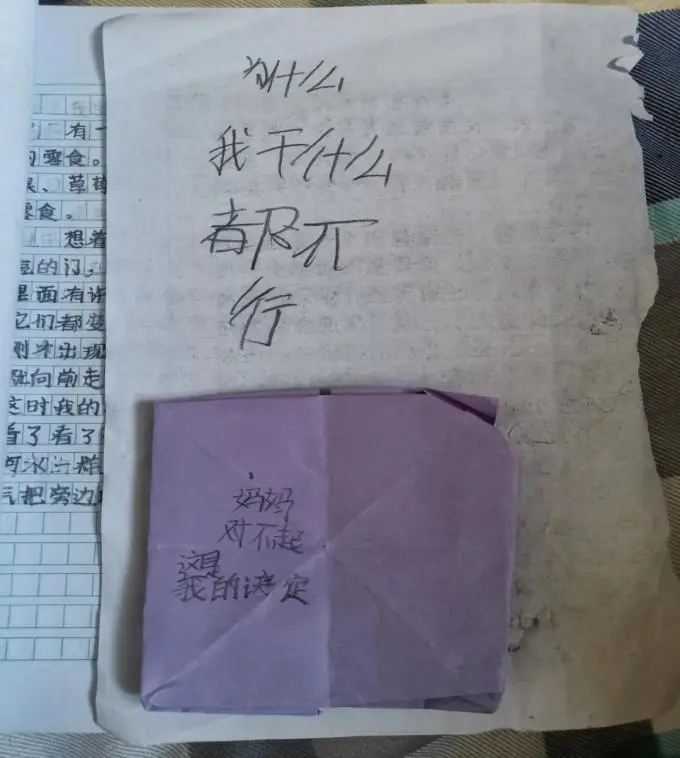 有一
零食。
、草莓
零食。
想着
的门,
里面有许
它们都变
刚才出现
向前走
这时我的
看了看了
气把旁边
为什么
我干什么
都不
行
妈妈
对不起
这是
我的决定